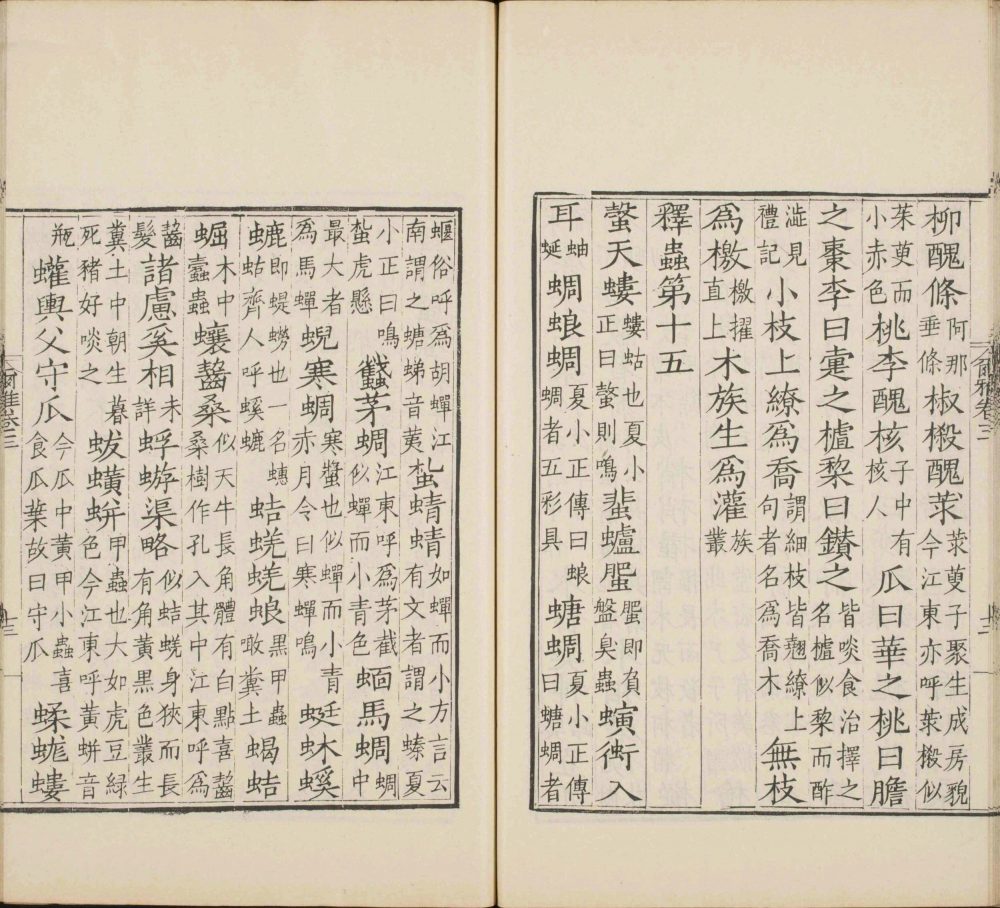 柳醜條阿那垂條椒樧醜莍莍萸子聚生成房貌今江東亦呼莍樧似
茱萸而小赤色桃李醜核子中有核人瓜曰華之桃曰膽
之棗李曰疐之樝棃曰鑽之皆啖食治擇之名樝似棃而酢
澁見禮記小枝上繚為喬謂細枝皆翹繚上句者名為喬木無枝
為檄檄擢直上木族生為灌族叢
釋蟲第十五
螜天螻螻蛄也夏小正曰螜則鳴蜚蠦蜰蜰即負盤臭蟲螾衝入
耳蚰蜒蜩蜋蜩夏小正傳曰蜋蜩者五彩具螗蜩夏小正傳曰螗蜩者
蝘俗呼為胡蟬江南謂之螗蛦音荑䘁蜻蜻如蟬而小方言云有文者謂之螓夏
小正曰鳴䘁虎懸蠽茅蜩江東呼為茅截似蟬而小青色蝒馬蜩蜩中
最大者為馬蟬蜺寒蜩寒螿也似蟬而小青赤月令曰寒蟬鳴蜓蚞螇
螰即蝭蟧也一名蟪蛄齊人呼螇螰蛣蜣蜣蜋黑甲蟲噉糞土蝎蛣
𧌑木中蠹蟲蠰齧桑似天牛長角體有白點喜齧桑樹作孔入其中江東呼為
齧髮諸慮奚相未詳蜉蝣渠略似蛣蜣身狹而長有角黃黑色叢生
糞土中朝生暮死豬好啖之蛂蟥蛢甲蟲也大如虎豆緑色今江東呼黃蛢音
瓶蠸輿父守瓜今瓜中黃甲小蟲喜食瓜葉故曰守瓜蝚蛖螻